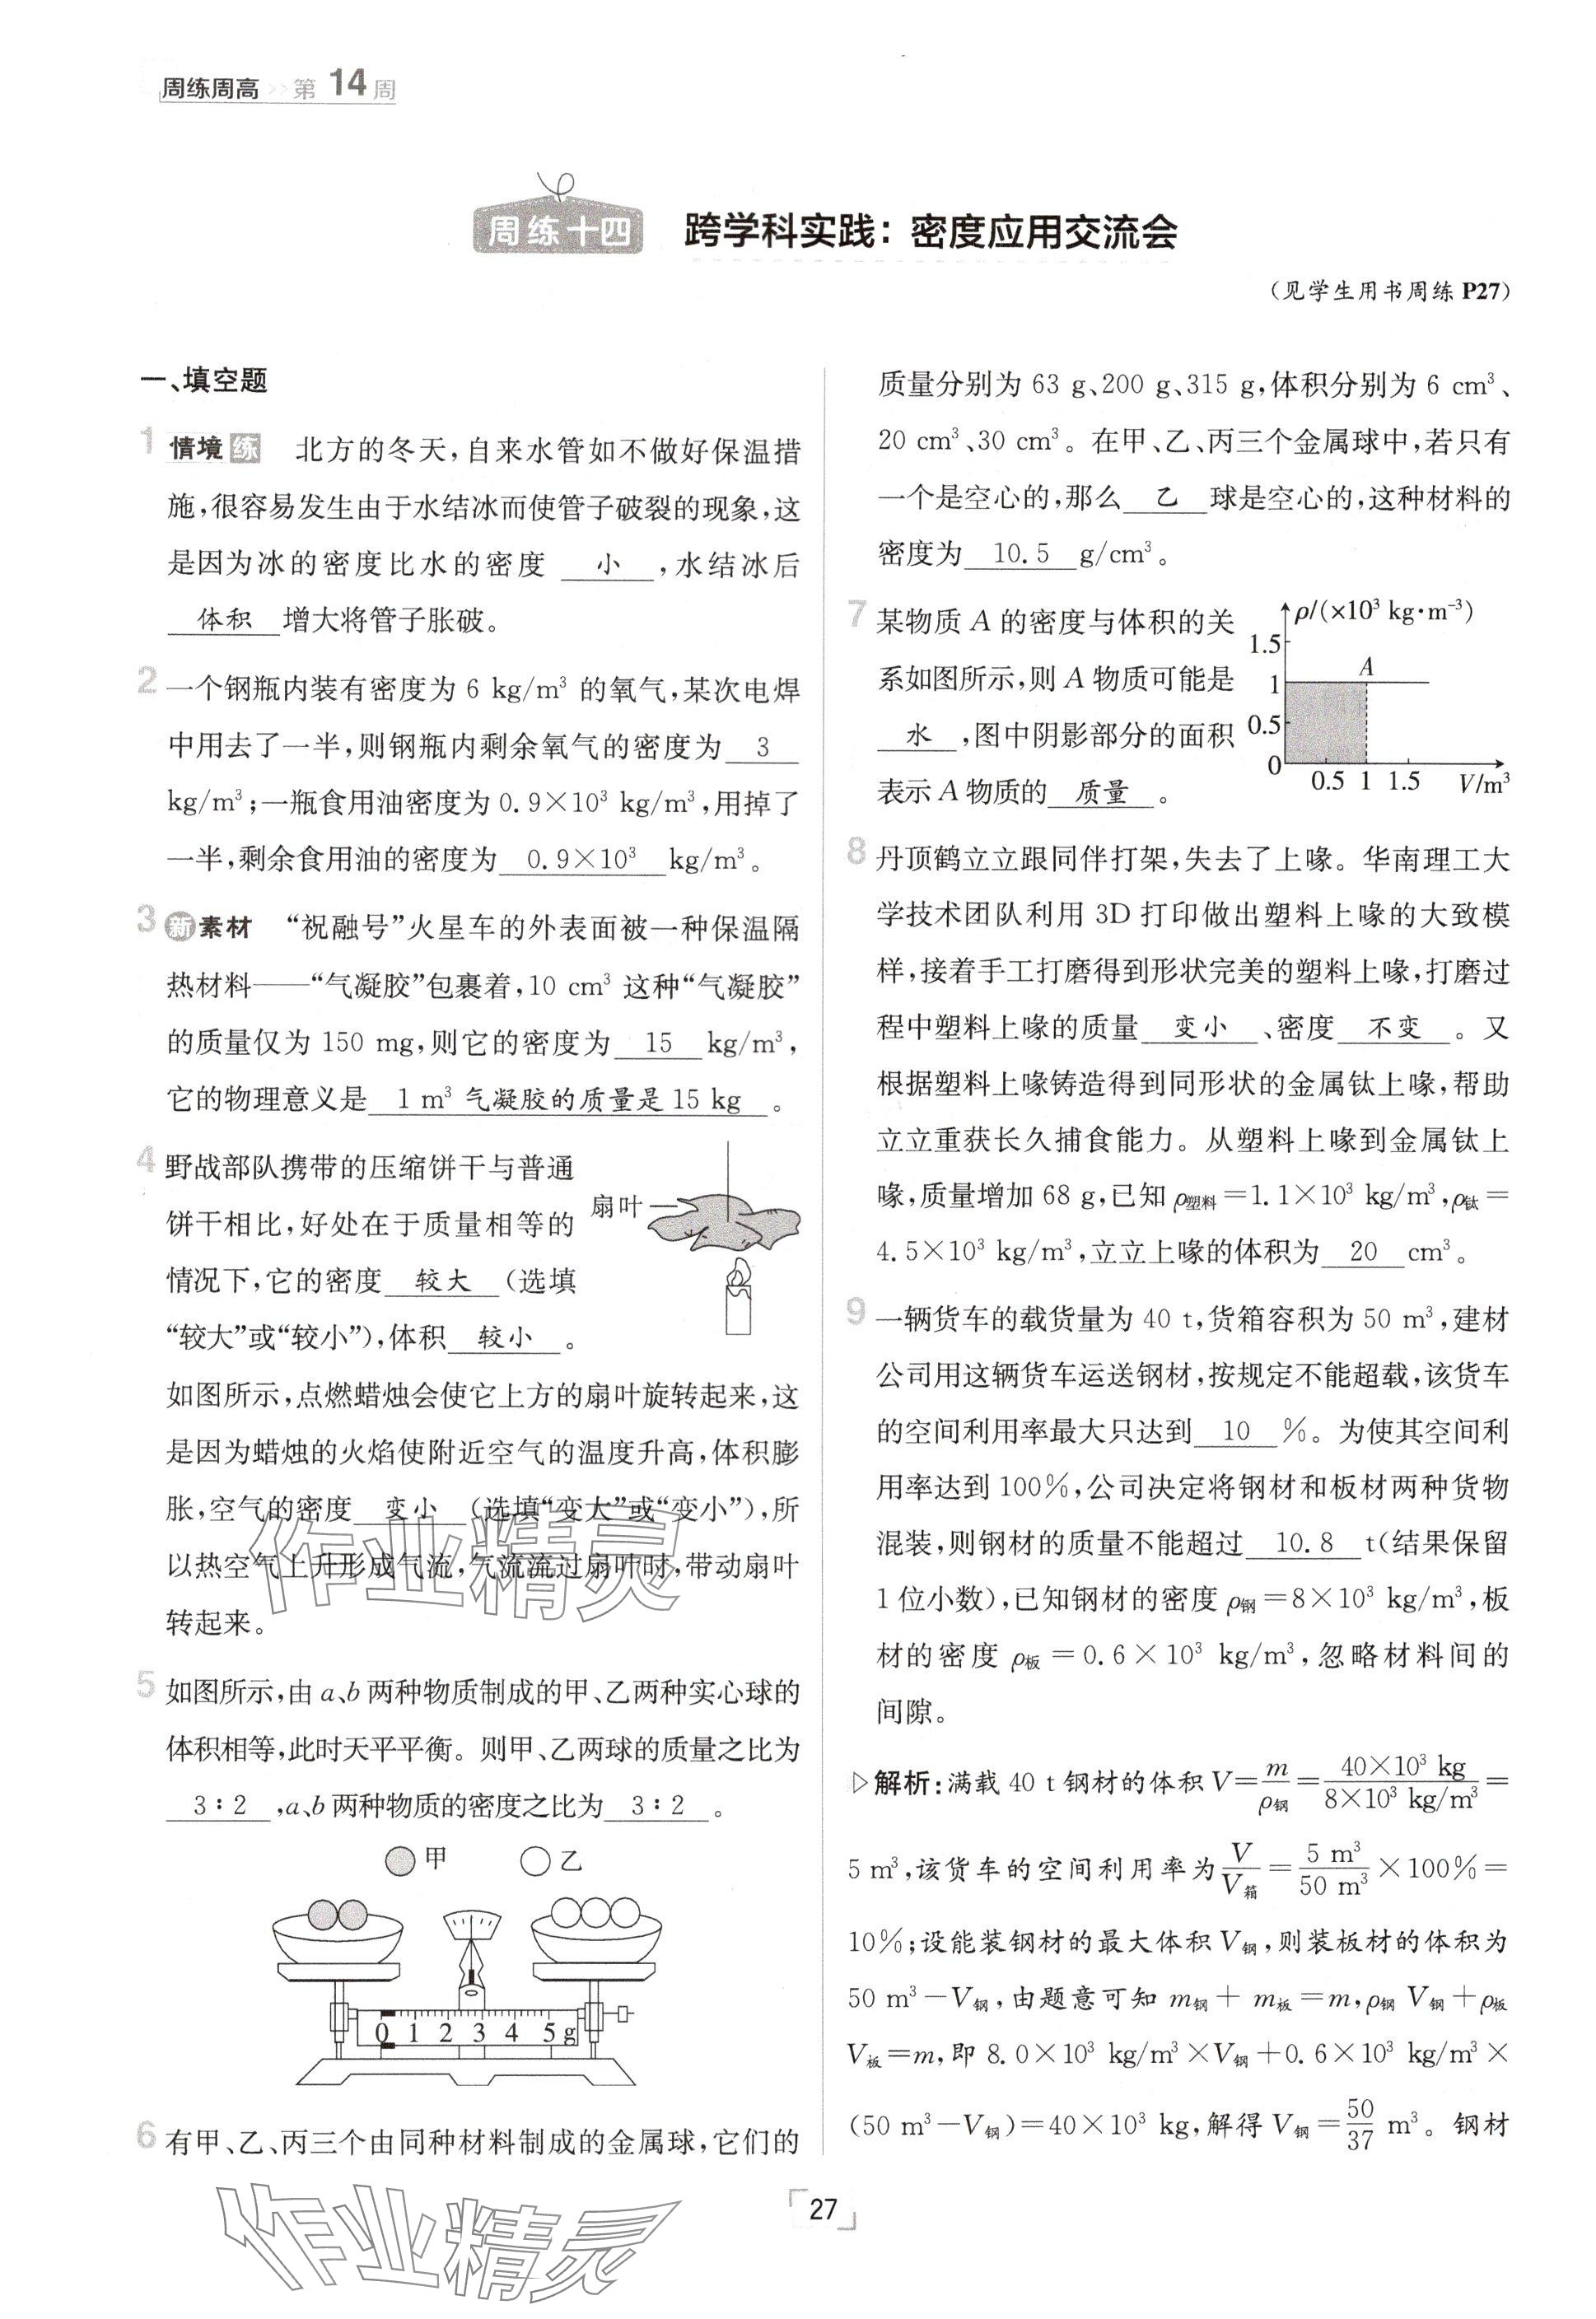 周练周高 >> 第 14 周
周练十四 跨学科实践：密度应用交流会
（见学生用书周练 P27）
一、填空题
1 情境 练 北方的冬天，自来水管如不做好保温措
施，很容易发生由于水结冰而使管子破裂的现象，这
是因为冰的密度比水的密度 小 ，水结冰后
体积 增大将管子胀破。
2 一个钢瓶内装有密度为 6 kg/m³ 的氧气，某次电焊
中用去了一半，则钢瓶内剩余氧气的密度为 3
kg/m³；一瓶食用油密度为 0.9×10³ kg/m³，用掉了
一半，剩余食用油的密度为 0.9×10³ kg/m³。
3 新 素材 “祝融号”火星车的外表面被一种保温隔
热材料——“气凝胶”包裹着，10 cm³ 这种“气凝胶”
的质量仅为 150 mg，则它的密度为 15 kg/m³，
它的物理意义是 1 m³ 气凝胶的质量是 15 kg 。
4 野战部队携带的压缩饼干与普通
饼干相比，好处在于质量相等的
情况下，它的密度 较大 （选填
“较大”或“较小”），体积 较小 。
扇叶
如图所示，点燃蜡烛会使它上方的扇叶旋转起来，这
是因为蜡烛的火焰使附近空气的温度升高，体积膨
胀，空气的密度 变小 （选填“变大”或“变小”），所
以热空气上升形成气流，气流流过扇叶时，带动扇叶
转起来。
5 如图所示，由 a、b 两种物质制成的甲、乙两种实心球的
体积相等，此时天平平衡。则甲、乙两球的质量之比为
3∶2 ，a、b 两种物质的密度之比为 3∶2 。
甲 乙
0 1 2 3 4 5 g
6 有甲、乙、丙三个由同种材料制成的金属球，它们的
质量分别为 63 g、200 g、315 g，体积分别为 6 cm³、
20 cm³、30 cm³。在甲、乙、丙三个金属球中，若只有
一个是空心的，那么 乙 球是空心的，这种材料的
密度为 10.5 g/cm³。
7 某物质 A 的密度与体积的关
系如图所示，则 A 物质可能是
水 ，图中阴影部分的面积
表示 A 物质的 质量 。
ρ/(×10³ kg·m⁻³)
1.5
A
1
0.5
0
0.5 1 1.5 V/m³
8 丹顶鹤立立跟同伴打架，失去了上喙。华南理工大
学技术团队利用 3D 打印做出塑料上喙的大致模
样，接着手工打磨得到形状完美的塑料上喙，打磨过
程中塑料上喙的质量 变小 、密度 不变 。又
根据塑料上喙铸造得到同形状的金属钛上喙，帮助
立立重获长久捕食能力。从塑料上喙到金属钛上
喙，质量增加 68 g，已知 ρ塑料＝1.1×10³ kg/m³，ρ钛＝
4.5×10³ kg/m³，立立上喙的体积为 20 cm³。
9 一辆货车的载货量为 40 t，货箱容积为 50 m³，建材
公司用这辆货车运送钢材，按规定不能超载，该货车
的空间利用率最大只达到 10 %。为使其空间利
用率达到 100%，公司决定将钢材和板材两种货物
混装，则钢材的质量不能超过 10.8 t（结果保留
1 位小数），已知钢材的密度 ρ钢＝8×10³ kg/m³，板
材的密度 ρ板＝0.6×10³ kg/m³，忽略材料间的
间隙。
▷解析：满载 40 t 钢材的体积 V＝m/ρ钢＝40×10³ kg/8×10³ kg/m³＝
5 m³，该货车的空间利用率为 V/V箱＝5 m³/50 m³×100%＝
10%；设能装钢材的最大体积 V钢，则装板材的体积为
50 m³－V钢，由题意可知 m钢＋m板＝m，ρ钢 V钢＋ρ板
V板＝m，即 8.0×10³ kg/m³×V钢＋0.6×10³ kg/m³×
(50 m³－V钢)＝40×10³ kg，解得 V钢＝50/37 m³。钢材
27
作业精灵
作业精灵